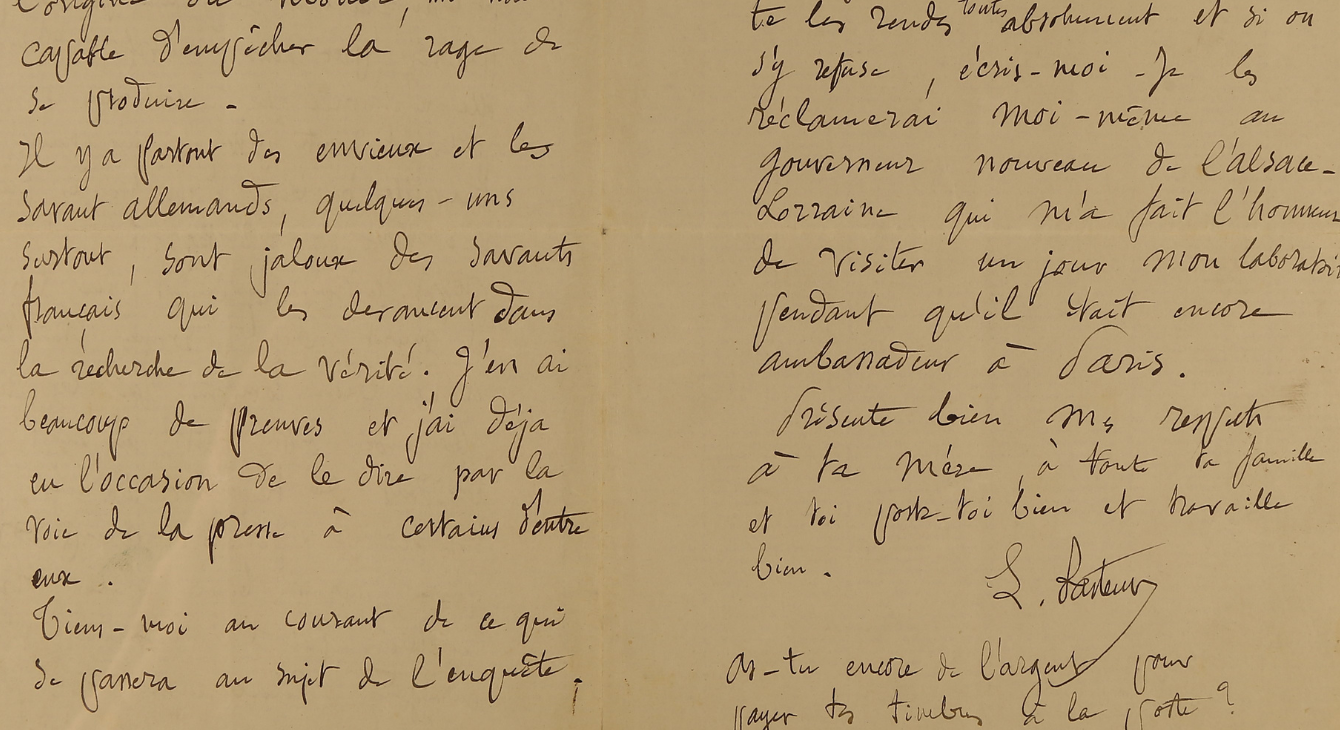 capable d'empêcher la rage de
se produire -
Il y a partout des envieux et les
savant allemands, quelques-uns
surtout, sont jaloux des savants
français qui les devancent dans
la recherche de la vérité. J'en ai
beaucoup de preuves et j'ai déja
eu l'occasion de le dire par la
voie de la presse à certains d'entre
eux.
Tiens-moi au courant de ce qui
se passera au sujet de l'enquête.
te les rendes toutes absolument et si on
s'y refuse, écris-moi - Je les
réclamerai moi-même au
gouverneur nouveau de l'alsace-
Lorraine qui m'a fait l'honneur
de visiter un jour mon laboratoi
pendant qu'il était encore
ambassadeur à Paris.
Présente bien mes respects
à ta mère, à toute ta famille
et toi porte-toi bien et travaille
bien.
L. Pasteur
as-tu encore de l'argent pour
payer tes timbres à la poste ?